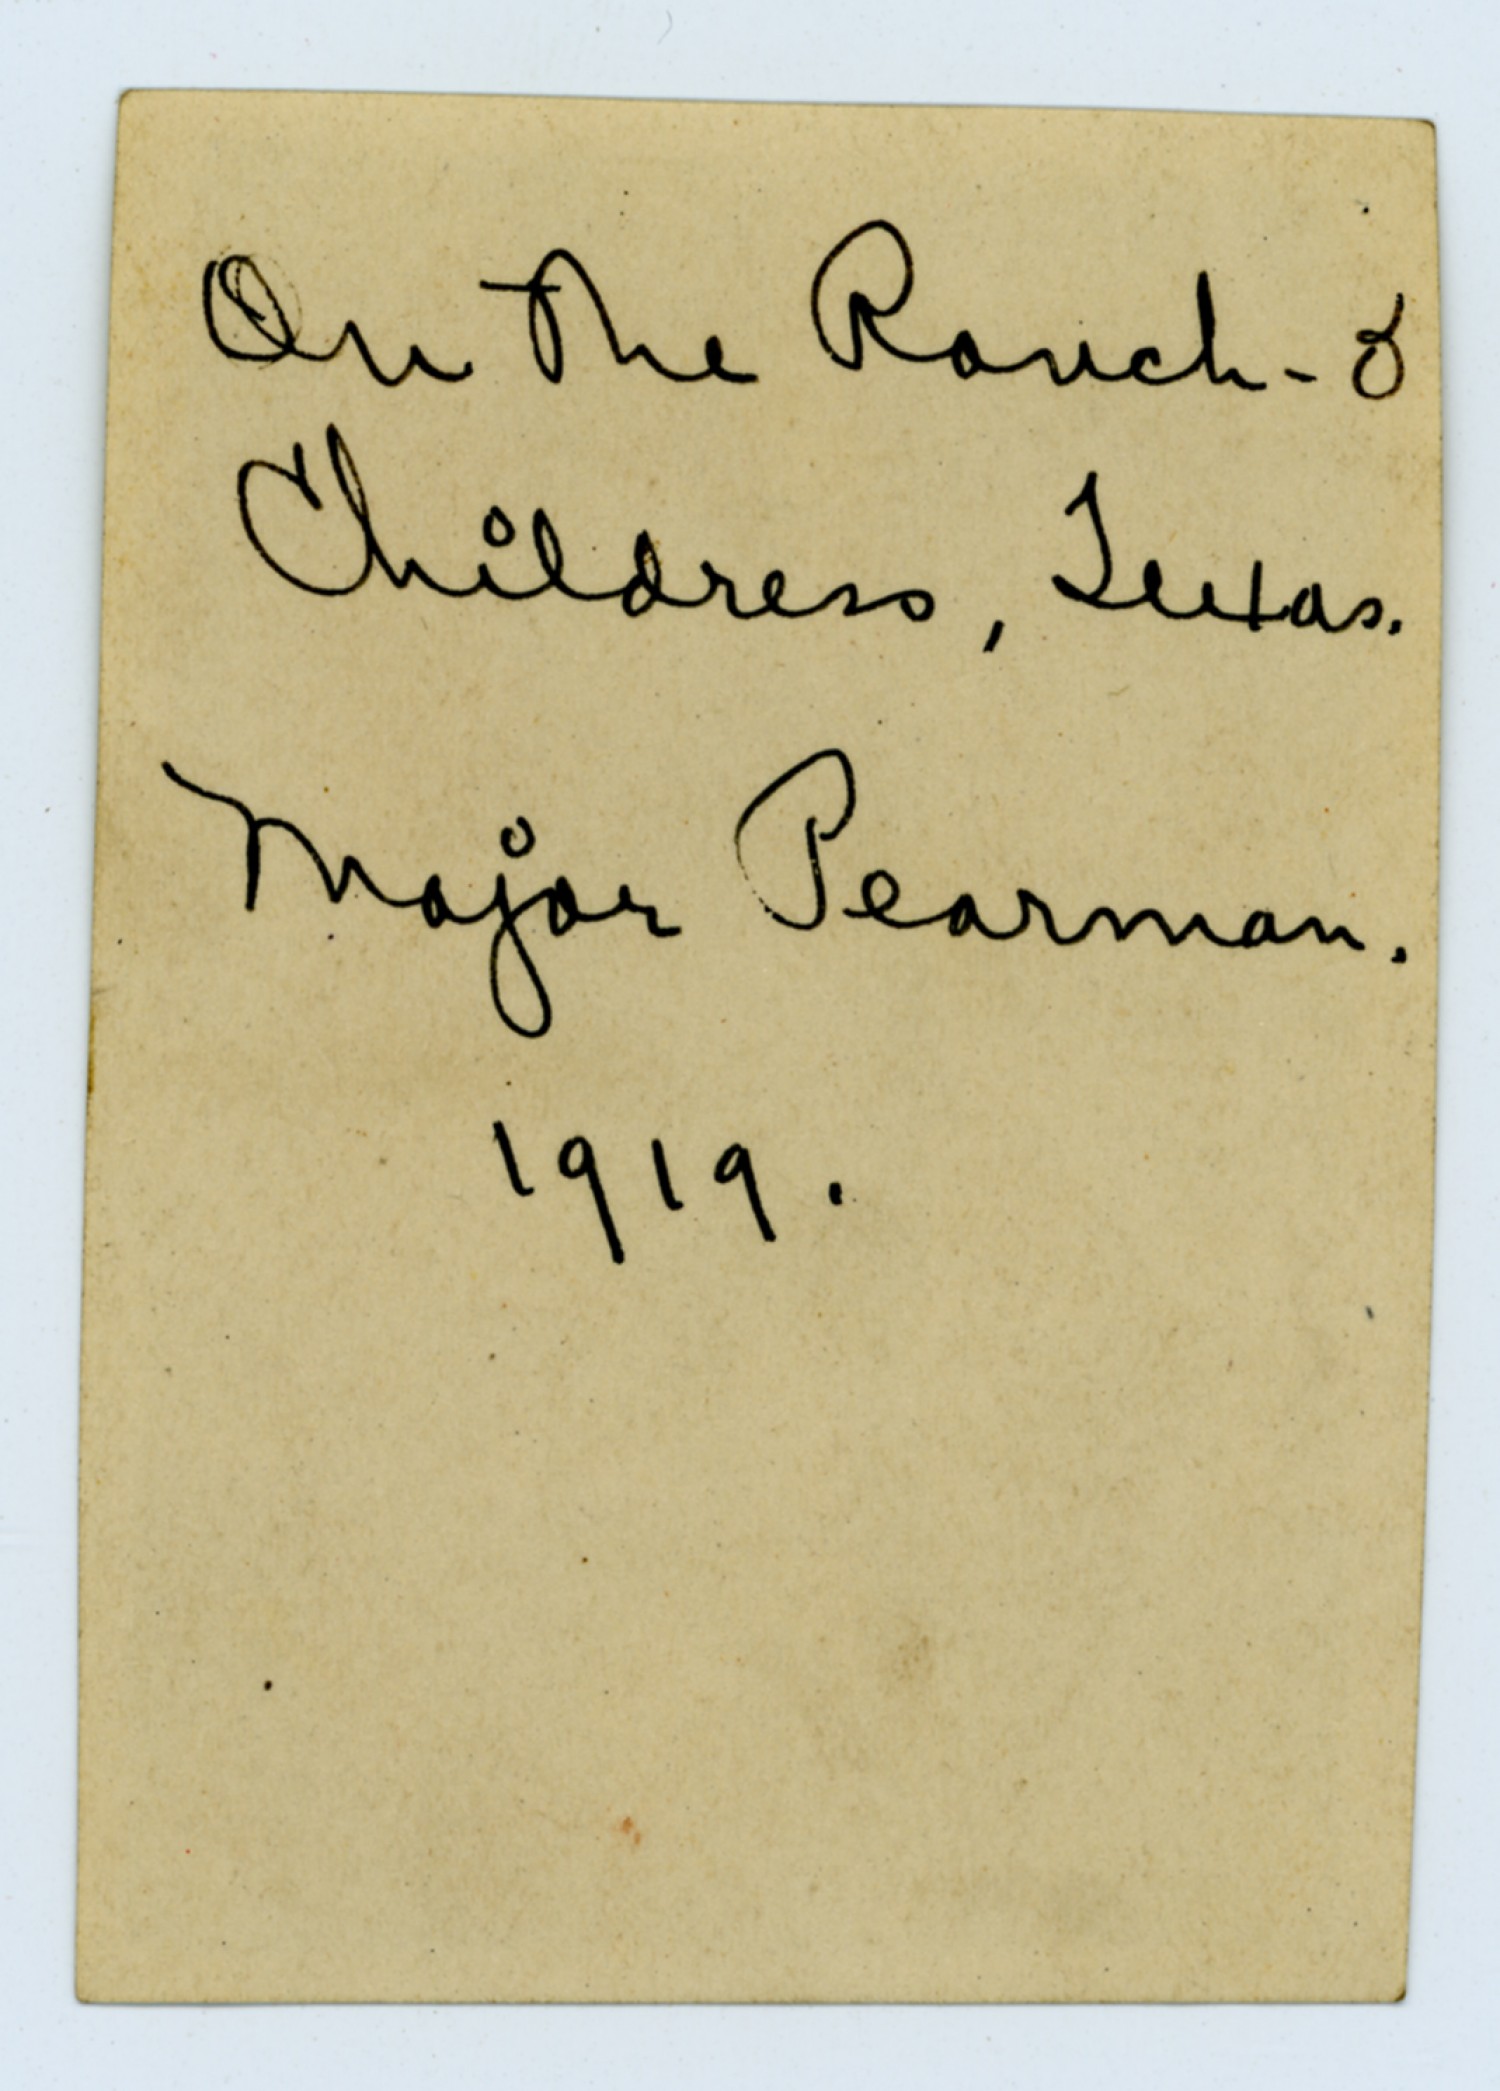 On The Ranch -
Childress, Texas.
Major Pearman.
1919.